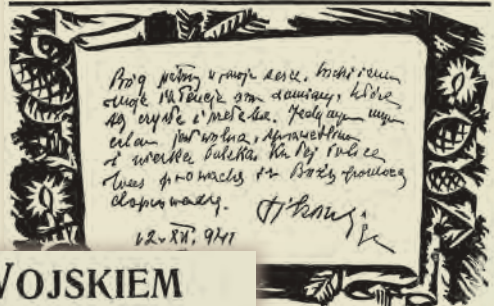 Bóg patrzy w moje serce.
moje intencje oraz zamiary, które
są czyste i Jedynym moim
celem jest wolna, sprawiedliwa
i wielka Polska. Ku tej Polsce
Was prowadzę i z Bożą pomocą
doprowadzę.
Sikorski
12.XII.941
WOJSKIEM